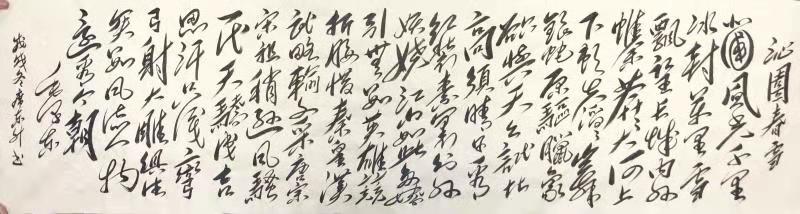 沁園春雪
北國風光千里
冰封萬里雪
飄望長城內外
惟余莽莽大河上
下頓失滔滔山舞
銀蛇原驅臘象
欲與天公試比
高須晴日看
紅裝素裹分外
妖嬈江山如此多嬌
引無數英雄競
折腰惜秦皇漢
武略輸文采唐宗
宋祖稍遜風騷
一代天驕成吉
思汗只識彎
弓射大雕俱往
矣數風流人物
還看今朝
毛澤東
戊戌冬